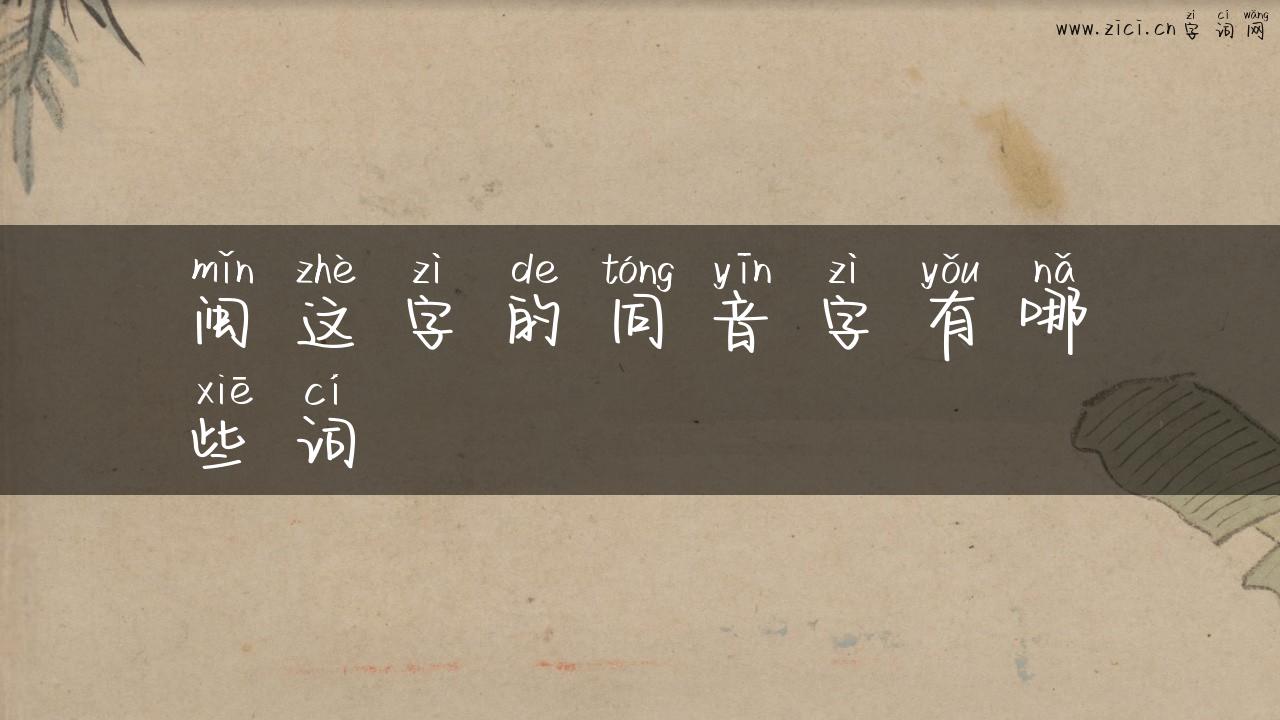 zì cí wǎng
www.zici.cn 字词网
mǐn zhè zì de tóng yīn zì yǒu nǎ
闽这字的同音字有哪
xiē cí
些词